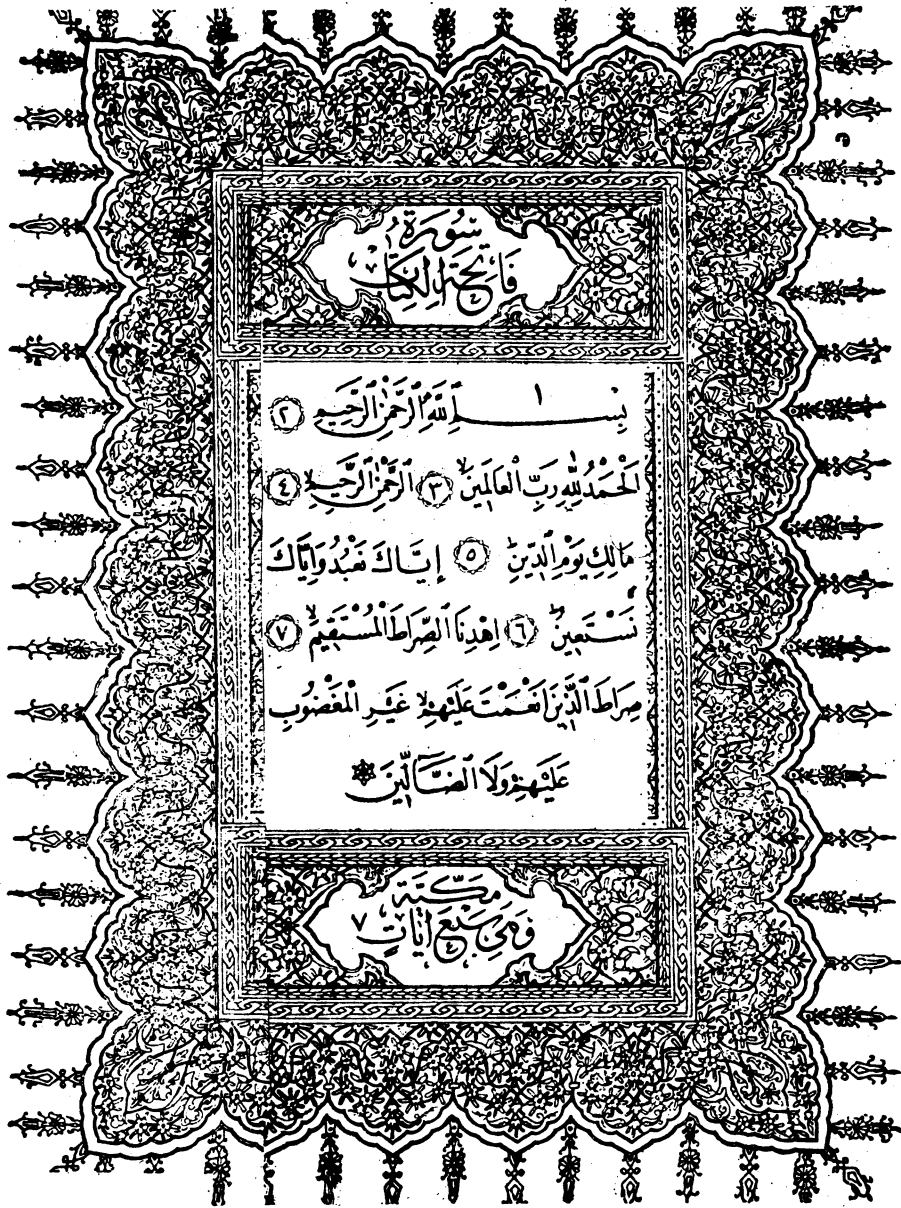 سُورَةُ
فَاتِحَةِ الْكِتَابِ
١
بِسْــــمِ ٱللَّهِ ٱلرَّحْمٰنِ ٱلرَّحِيمِ ٢
اَلْحَمْدُ لِلّٰهِ رَبِّ ٱلْعَالَمِينَۙ ٣ اَلرَّحْمٰنِ ٱلرَّحِيمِۙ ٤
مَالِكِ يَوْمِ ٱلدِّينِۜ ٥ إِيَّاكَ نَعْبُدُ وَإِيَّاكَ
نَسْتَعِينُۜ ٦ اِهْدِنَا ٱلصِّرَاطَ ٱلْمُسْتَقِيمَۙ ٧
صِرَاطَ ٱلَّذِينَ اَنْعَمْتَ عَلَيْهِمْۙ غَيْرِ ٱلْمَغْضُوبِ
عَلَيْهِمْ وَلَا ٱلضَّآلِّينَ
مَكِّيَّة
وَهِيَ سَبْعُ اٰيَاتٍ ٧